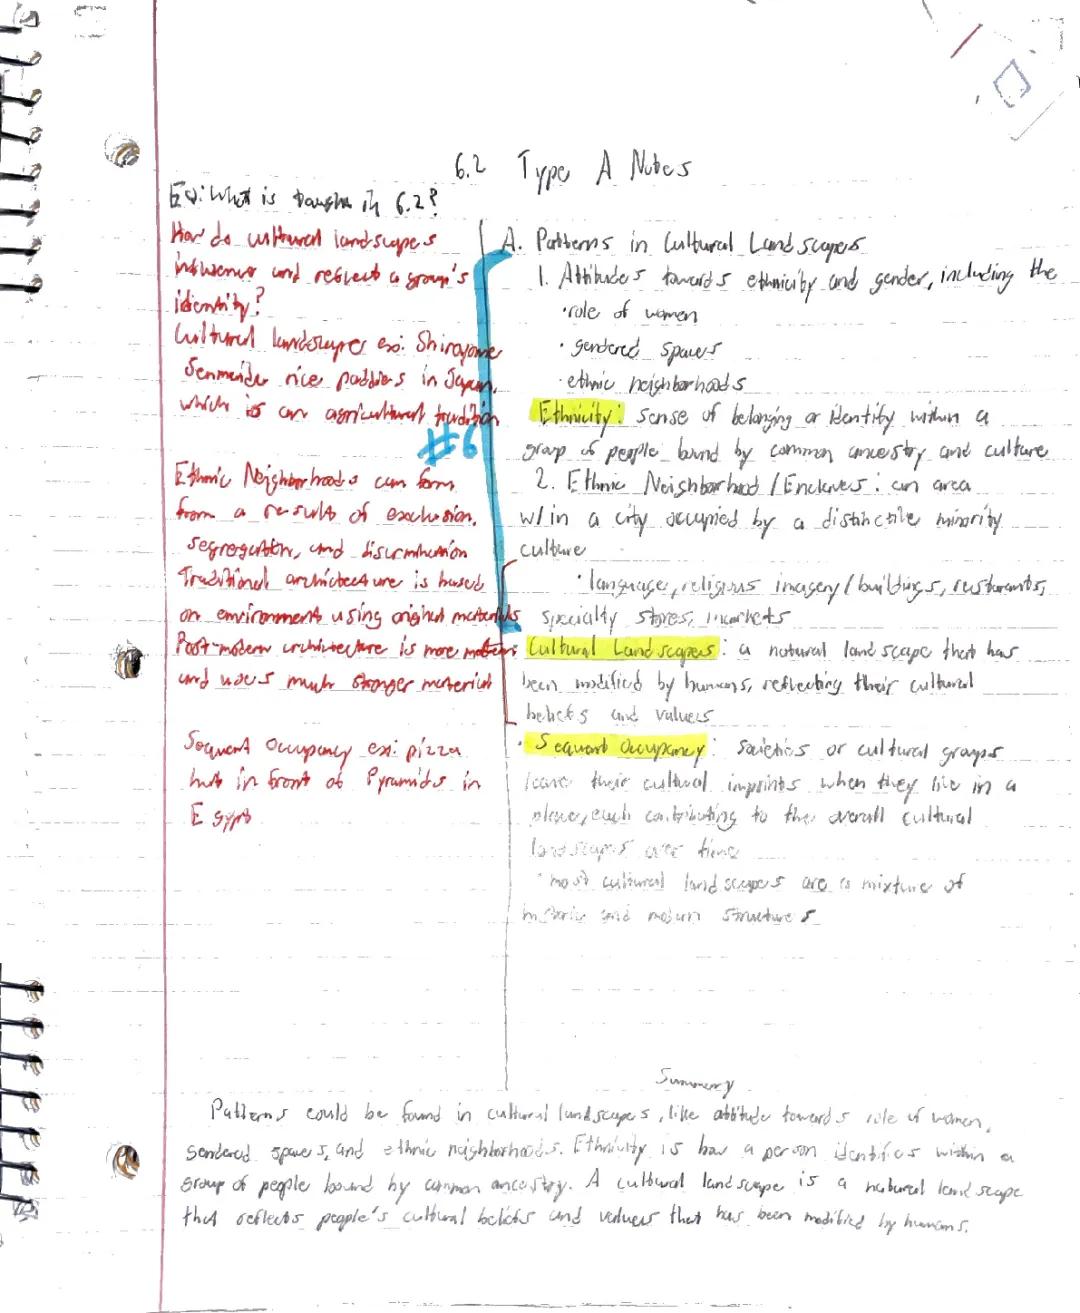 6.2 Type A Notes
EQ: What is taught in 6.2?
How do cultural landscapes
influence and reflect a group's
identity?
Cultural landscapes ex: Shiroyone
Senmaida rice paddies in Japan,
which is an agricultural tradition
#6
Ethnic Neighborhoods can form
from a result of exclusion,
segregation, and discrimination
Traditional architecture is based
on environment using original materials
Post-modern architecture is more modern
and uses much stronger material
Sequent Occupancy ex: pizza
hut in front of Pyramids in
Egypt
A. Patterns in Cultural Landscapes
1. Attitudes towards ethnicity and gender, including the
· role of women
· gendered spaces
· ethnic neighborhoods
Ethnicity: sense of belonging or identity within a
group of people bound by common ancestry and culture
2. Ethnic Neighborhood / Enclaves: an area
w/in a city occupied by a distinctive minority
culture
· language, religious imagery/buildings, restaurants,
specialty stores, markets
Cultural Landscapes: a natural landscape that has
been modified by humans, reflecting their cultural
beliefs and values
· Sequent Occupancy: Societies or cultural groups
leave their cultural imprints when they live in a
place, each contributing to the overall cultural
landscapes over time
· most cultural landscapes are a mixture of
historic and modern structures
Summary
Patterns could be found in cultural landscapes, like attitude towards role of women,
gendered spaces, and ethnic neighborhoods. Ethnicity is how a person identifies within a
group of people bound by common ancestry. A cultural landscape is a natural landscape
that reflects people's cultural beliefs and values that has been modified by humans.